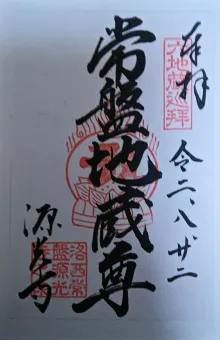 奉拝
六地蔵巡拝
令二、八、廿二
常盤地蔵尊
源光寺
洛西常
盤源光